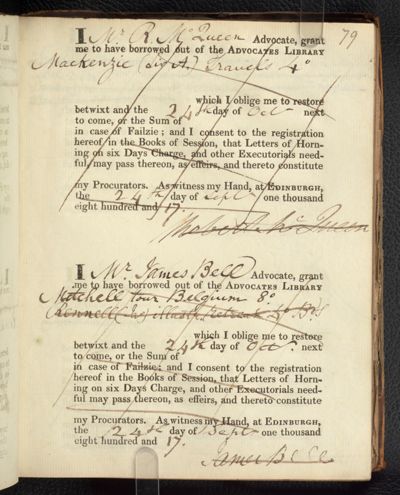 79
I Mr R. McQueen Advocate, grant
me to have borrowed out of the ADVOCATES LIBRARY
Mackenzie (Sir A.) Travels 4º
which I oblige me to restore
betwixt and the 24th day of Octr next
to come, or the Sum of
in case of Failzie; and I consent to the registration
hereof in the Books of Session, that Letters of Horn-
ing on six Days Charge, and other Executorials need-
ful may pass thereon, as effeirs, and thereto constitute
my Procurators. As witness my Hand, at EDINBURGH,
the 24th day of Sept one thousand
eight hundred and 17.
Robert McQueen
I Mr. James Bell Advocate, grant
me to have borrowed out of the ADVOCATES LIBRARY
Mitchell tour Belgium 8º
which I oblige me to restore
betwixt and the 24th day of Octr. next
to come, or the Sum of
in case of Failzie; and I consent to the registration
hereof in the Books of Session, that Letters of Horn-
ing on six Days Charge, and other Executorials need-
ful may pass thereon, as effeirs, and thereto constitute
my Procurators. As witness my Hand, at EDINBURGH,
the 24th day of Sept one thousand
eight hundred and 17.
James Bell